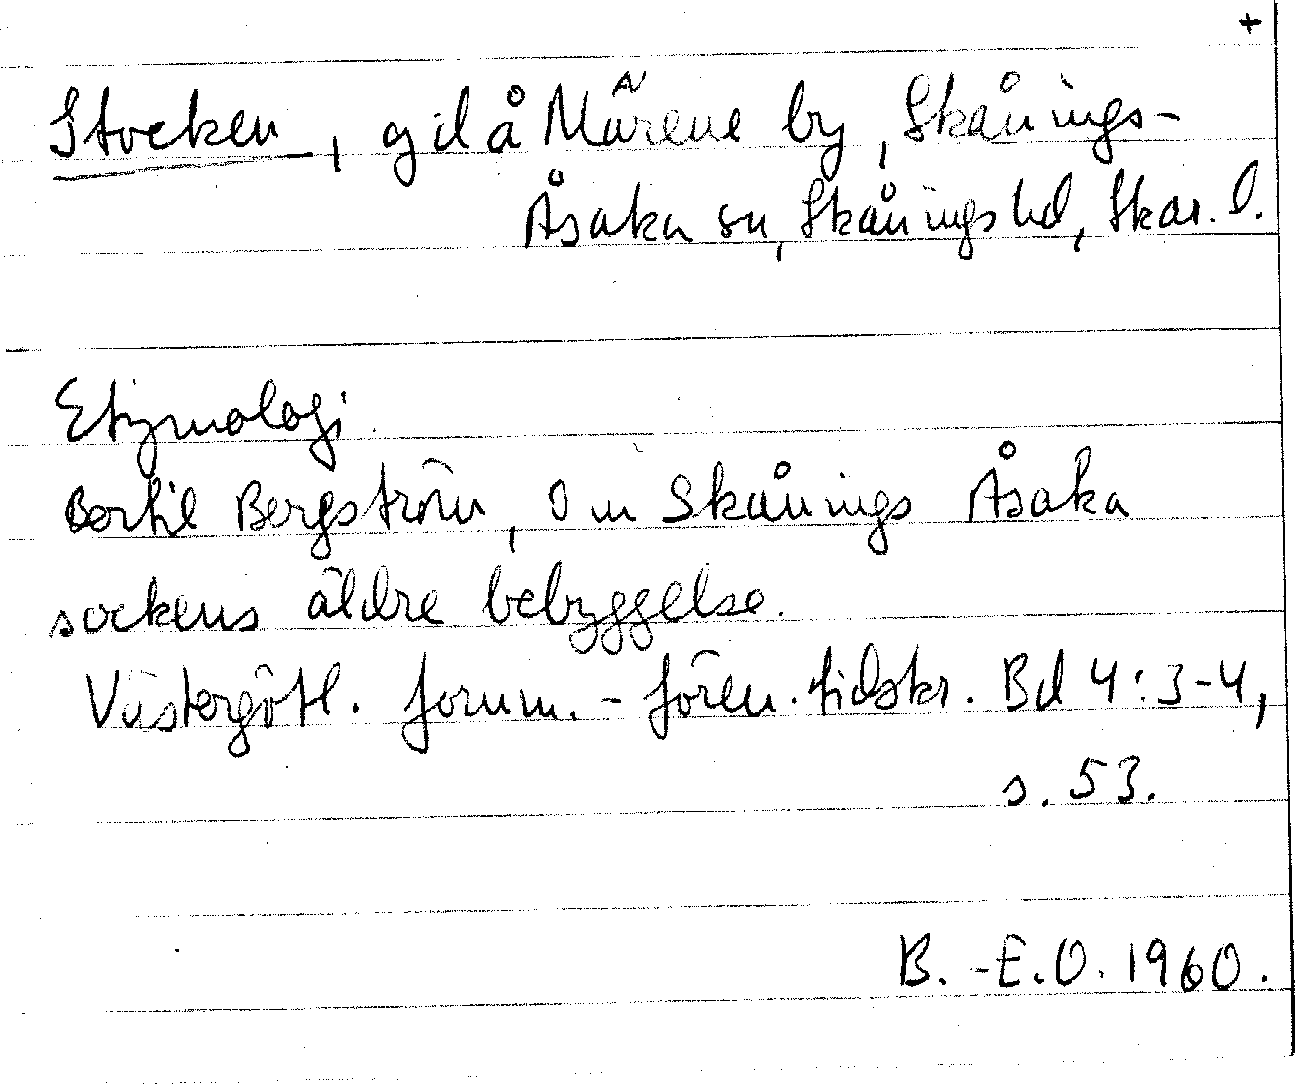 +
Stocken, gd å Märene by, Skånings-
Åsaka sn, Skånings hd, Skar. l.
Etymologi
Bertil Bergström, Om Skånings Åsaka
sockens äldre bebyggelse.
Västergötl. fornm. - fören. tidskr. Bd 4:3-4,
s. 53.
B.-E.O. 1960.